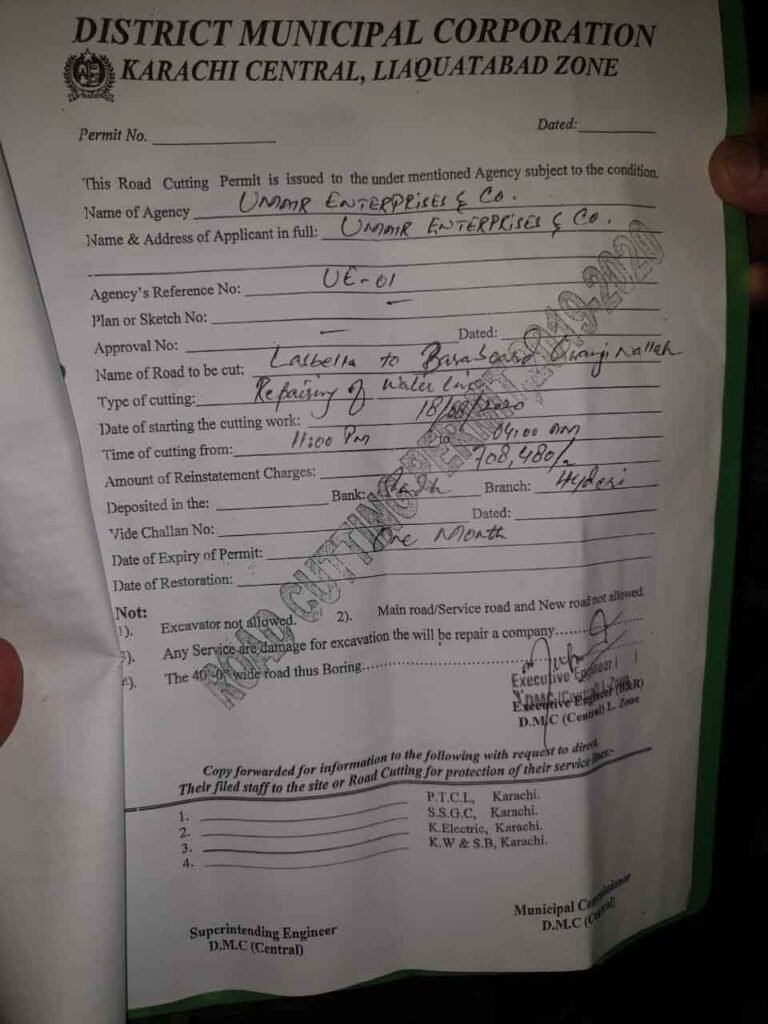 DISTRICT MUNICIPAL CORPORATION
KARACHI CENTRAL, LIAQUATABAD ZONE
Permit No.
Dated:
This Road Cutting Permit is issued to the under mentioned Agency subject to the condition.
Name of Agency UMAIR ENTERPRISES & Co.
Name & Address of Applicant in full: UMAIR ENTERPRISES & Co.
Agency's Reference No: UE-01
Plan or Sketch No: —
Approval No: — Dated:
Name of Road to be cut: Lasbella to Nallah
Type of cutting: Repairing of Water line
Date of starting the cutting work: 18/08/2020
Time of cutting from: 11:00 PM to 04:00 AM
Amount of Reinstatement Charges: 708,480/-
Deposited in the: Bank: Sindh Branch: Hyderi
Vide Challan No: Dated:
Date of Expiry of Permit: One Month
Date of Restoration:
ROAD CUTTING PERMIT 2019-2020
Not:
1). Excavator not allowed. 2). Main road/Service road and New road not allowed.
3). Any Service are damage for excavation the will be repair a company
4). The 40'-0" wide road thus Boring
Executive Engineer
DMC (Central) L Zone
Executive Engineer (B&R)
D.M.C (Central) L. Zone
Copy forwarded for information to the following with request to direct,
Their filed staff to the site or Road Cutting for protection of their service lines:-
1. P.T.C.L, Karachi.
2. S.S.G.C, Karachi.
3. K.Electric, Karachi.
4. K.W & S.B, Karachi.
Superintending Engineer
D.M.C (Central)
Municipal Commissioner
D.M.C (Central)